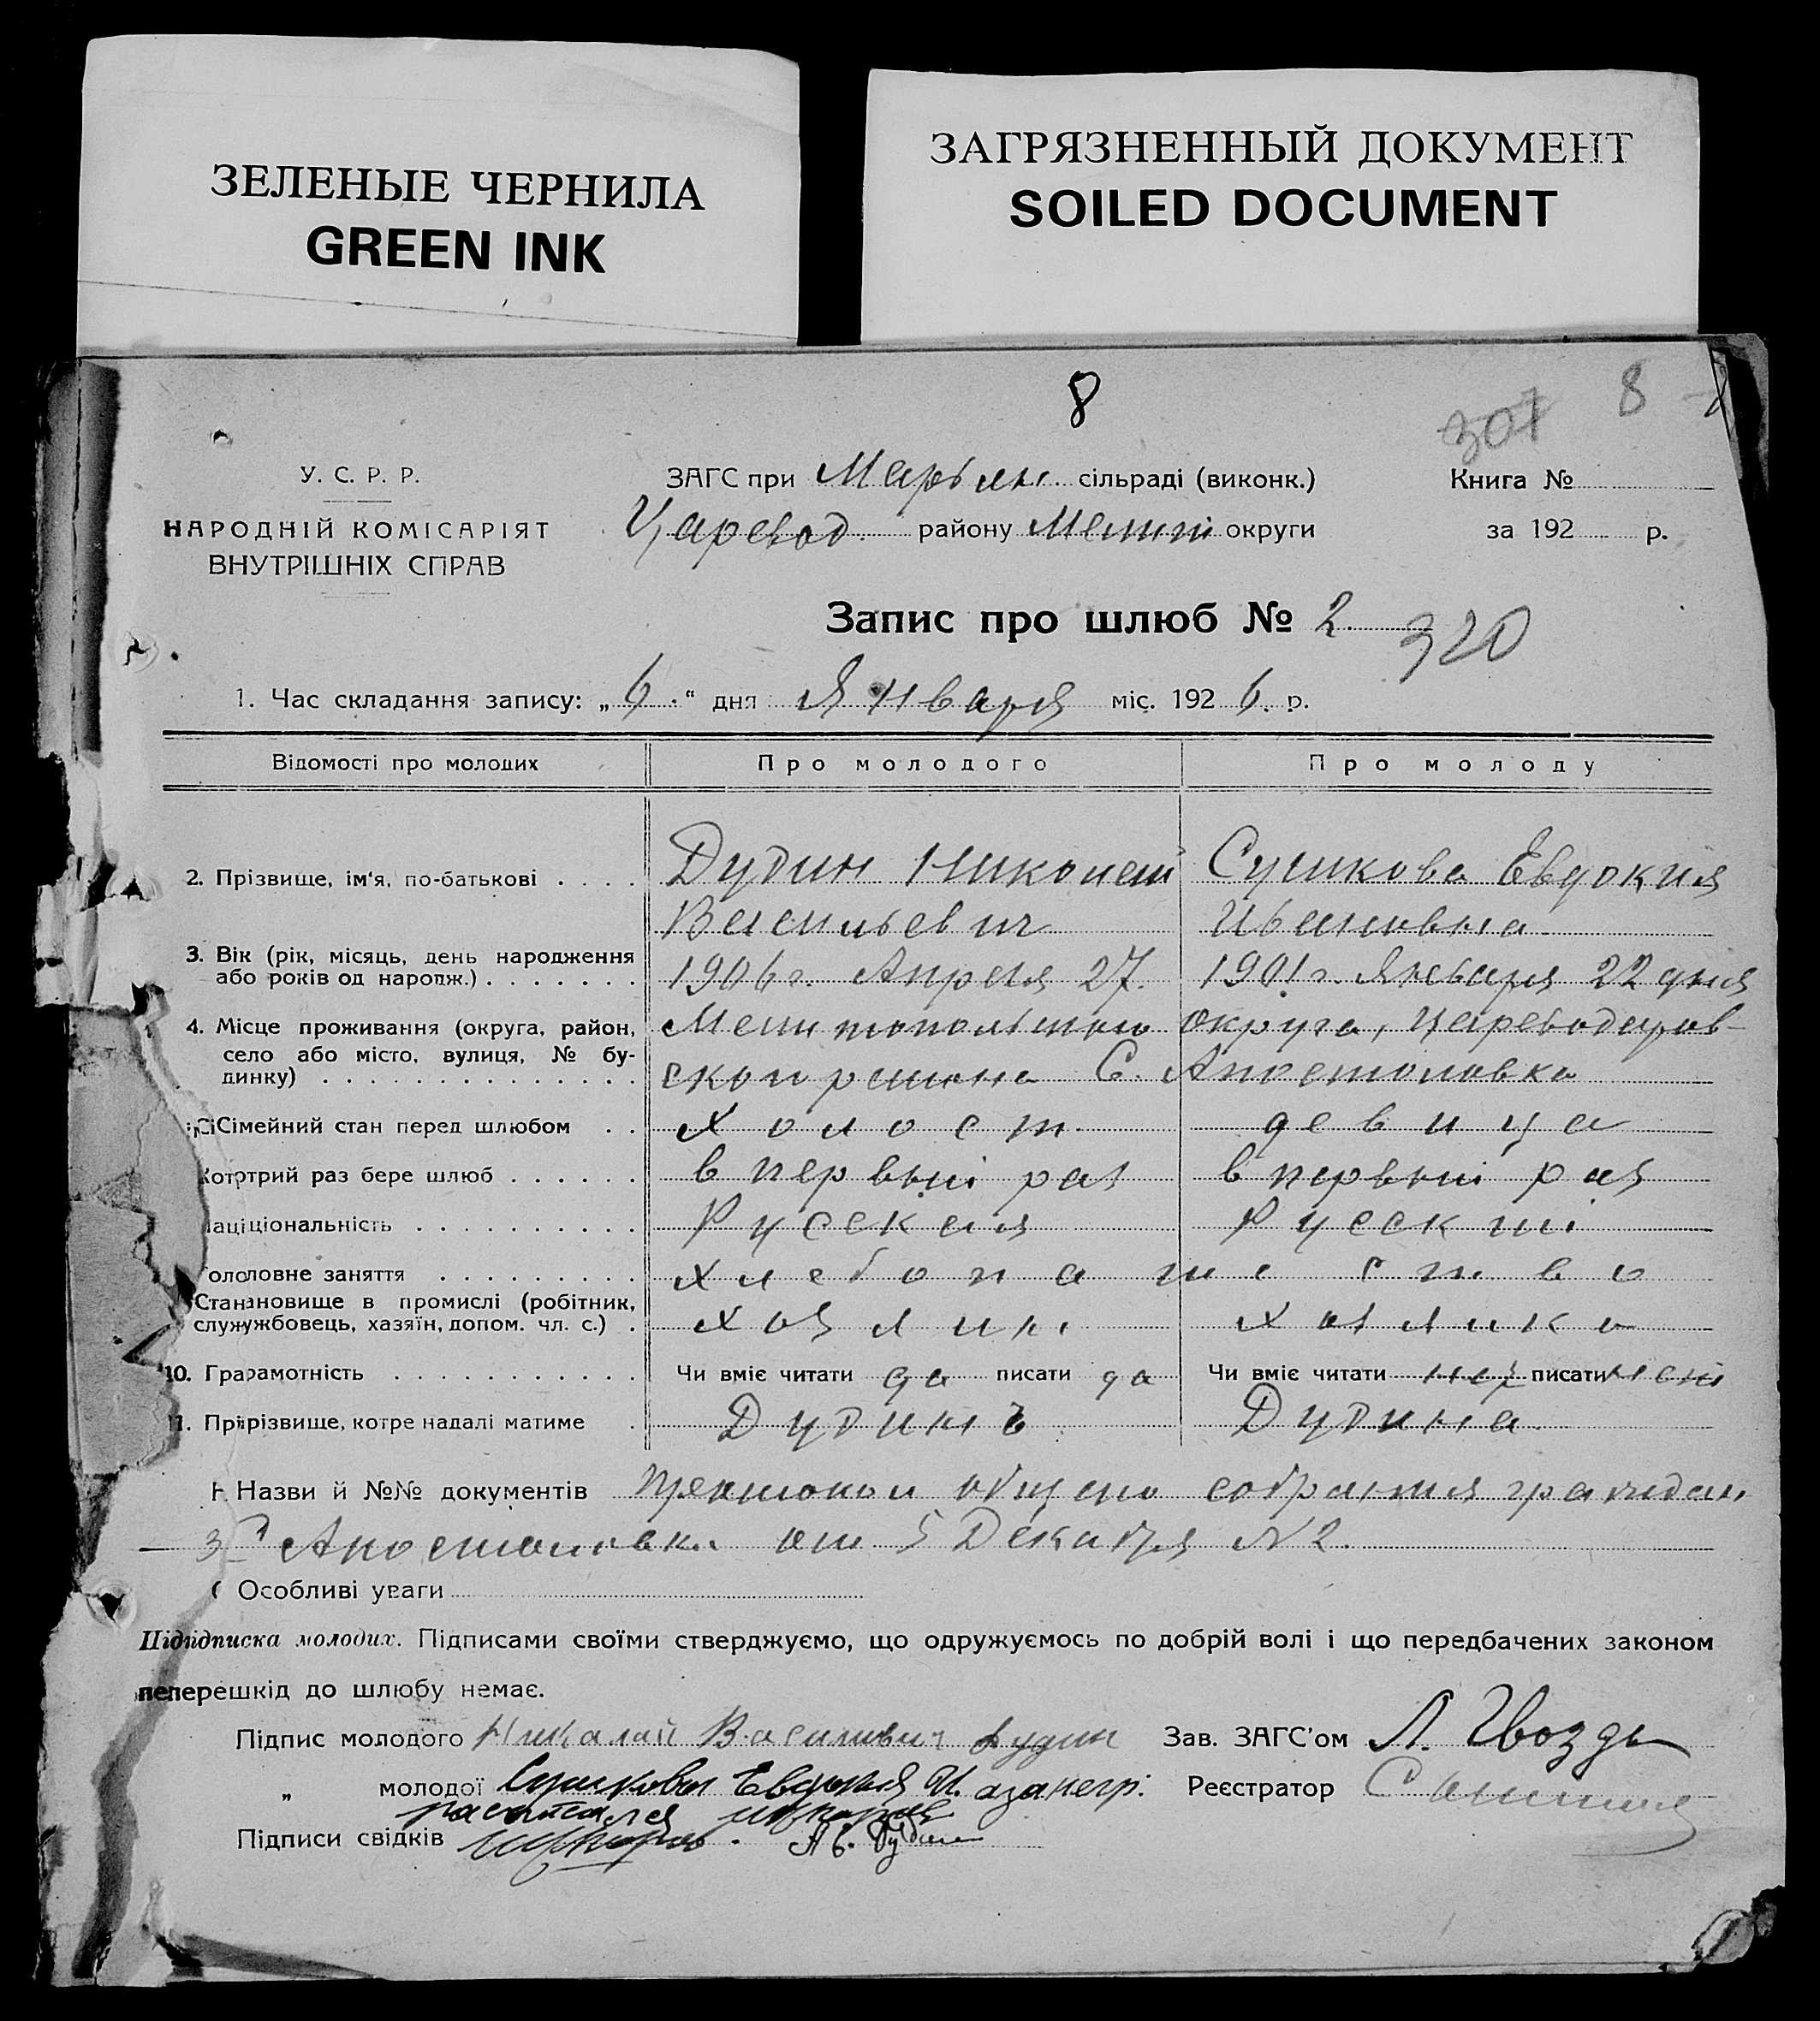 ЗЕЛЕНЫЕ ЧЕРНИЛА
GREEN INK
ЗАГРЯЗНЕННЫЙ ДОКУМЕНТ
SOILED DOCUMENT
8
307 8
У. С. Р. Р.
НАРОДНІЙ КОМІСАРІЯТ
ВНУТРІШНІХ СПРАВ
ЗАГС при Марьян. сільраді (виконк.)
Царевод. району Мелит округи
Книга №
за 192 р.
Запис про шлюб № 2 320
1. Час складання запису: „ 6 “ дня Января міс. 192 6. р.
Відомості про молодих Про молодого Про молоду
2. Прізвище, ім'я, по-батькові . . . . Дудин Николай Сушкова Евдокия
Васильевич Ивановна
3. Вік (рік, місяць, день народження
або років од народж.) . . . . . . . 1906 г. Апреля 27. 1901 г. Января 22 дня
4. Місце проживання (округа, район, Мелитопольского округа, Цареводаров-
село або місто, вулиця, № бу-
динку) . . . . . . . . . . . . . . ского района С. Апостоловка
Сімейний стан перед шлюбом . . Холост. девица
Котрий раз бере шлюб . . . . . . в первый раз в первый раз
Національність . . . . . . . . . . Русская Русский
Головне заняття . . . . . . . . . хлебопашество
Становище в промислі (робітник,
службовець, хазяїн, допом. чл. с.) . хозяин хозяйка
10. Грамотність . . . . . . . . . . . Чи вміє читати да писати да Чи вміє читати нет писати нет
11. Прізвище, котре надалі матиме . Дудинъ Дудина.
Назви й №№ документів Протокол общего собрания граждан
Апостоловки от 5 Декабря N 2.
Особливі уваги
Підписка молодих. Підписами своїми стверджуємо, що одружуємось по добрій волі і що передбачених законом
перешкід до шлюбу немає.
Підпис молодого Николай Василивич Дудин Зав. ЗАГС'ом Л. Гвоздь
„ молодої Сушкова Евдокия И. а за негр. Реєстратор
росписался
Підписи свідків